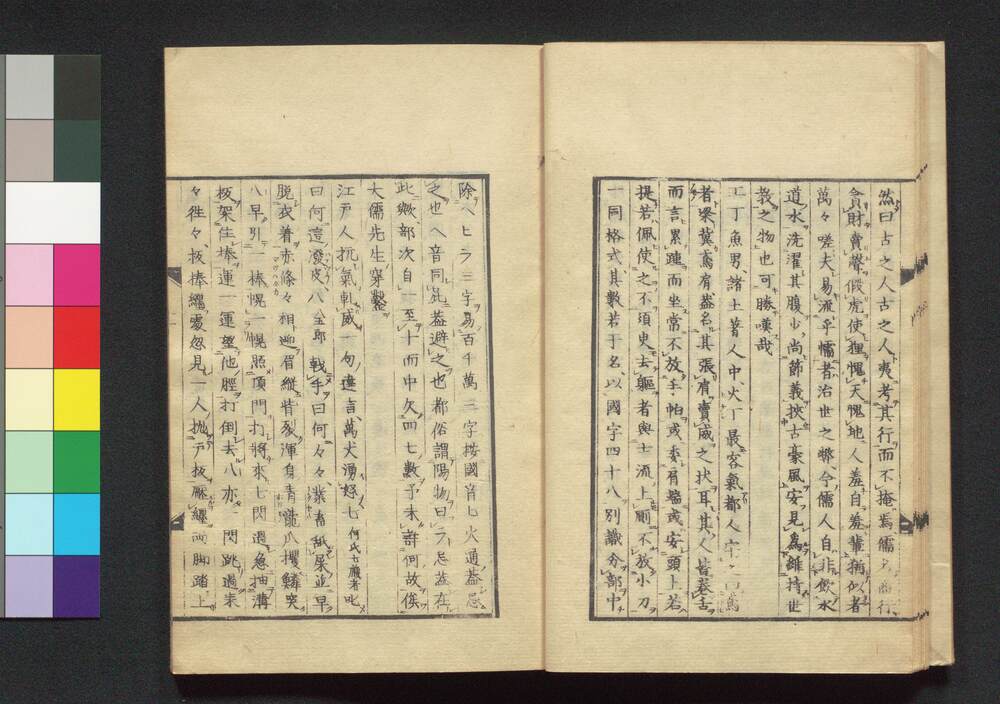 然曰古之人古之人夷考其行而不掩焉儒 商行
貪財賣聲假虎使狸愧天愧地人羞自羞輩稍似者
萬々嗟夫易流乎懦者治世之弊今儒人自非飲水
道水洗濯其腹少尚節義挾古豪風安見為維持世
教之物也可勝嘆哉
工丁魚男諸土著人中火丁最客氣都人字之 鳶
者榘冀鳶肩蓋名其張肩賣威之状耳其人皆卷舌
而言累踵而坐常不放手帕或委肩端或安頭上若
提若佩使之不須臾去軀者與士流上廁不放小刀
一同格式其數若于名以國字四十八別識分部中
除ヘヒラ三字易百千萬三字按國音ヒ火通蓋忌
之也ヘ音同屁蓋避之也都俗謂陽物曰ラ忌蓋在
此歟部次自一至十而中欠四七數予未詳何故俟
大儒先生穿鑿
江戸人抗氣軋威一句違言萬犬湧怒七 何氏七願者叱
曰何這潑皮八 八全郎 戟手曰何々々業畜舐屎並早
脱衣着赤條々相迎眉縱眥裂渾身青龍爪攫鱗突
八早引一棒幌一幌照頂門打將來七閃過急抽溝
板架住棒運一運望他脛打倒去八亦 閃跳過来
々徃々板棒纒處忽見一人抛戸板壓纒兩脚踏上